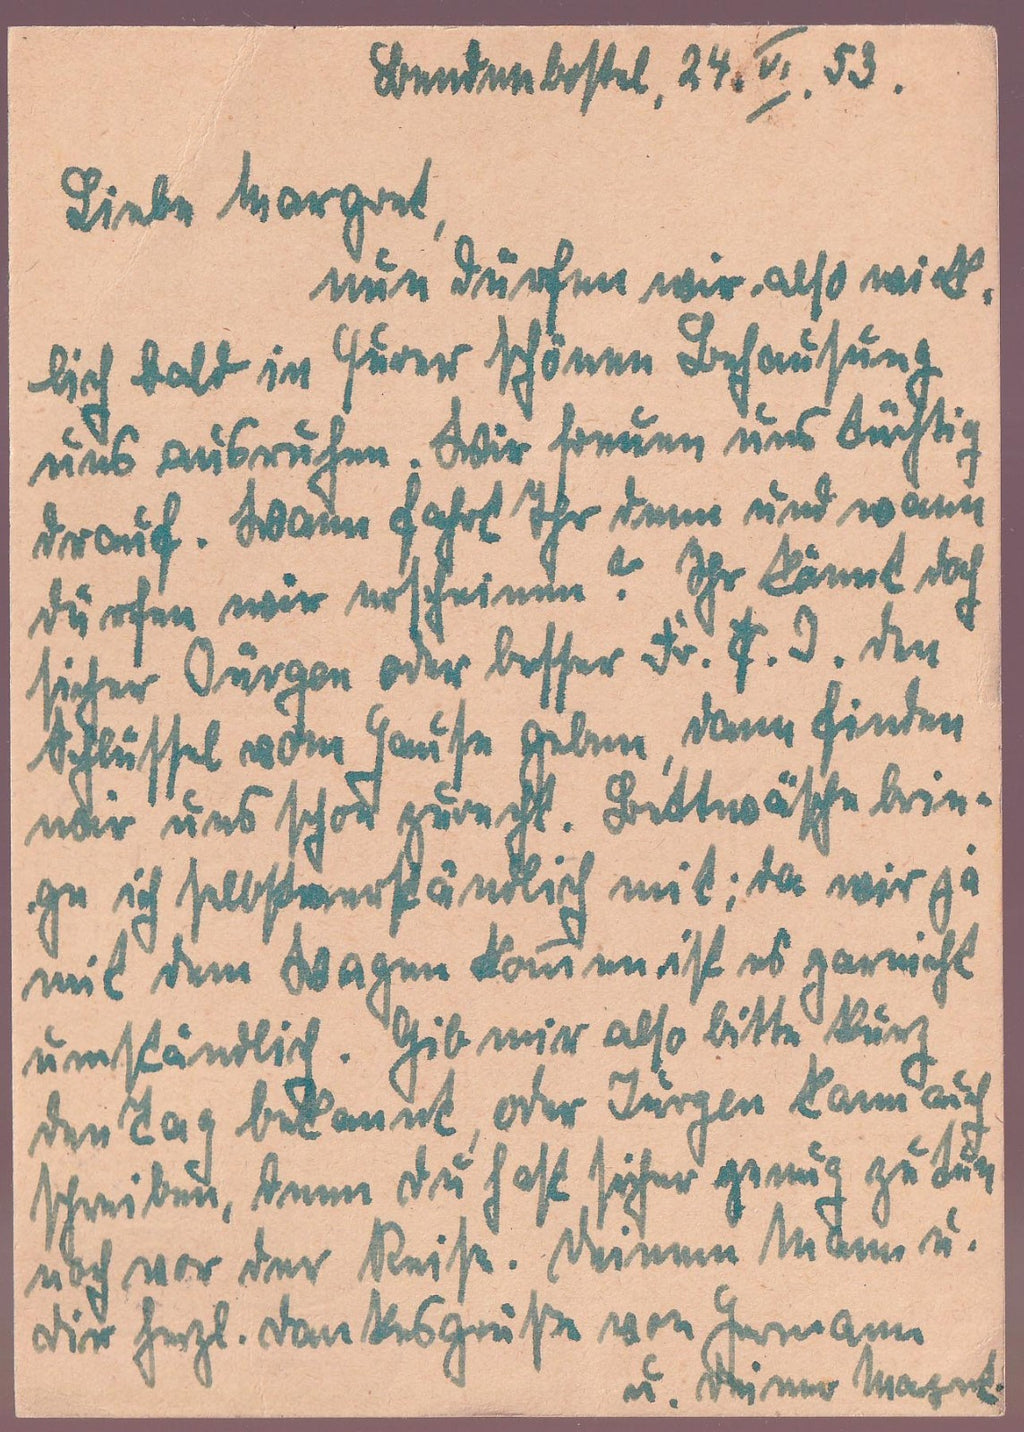 Bendenbostel, 24. VI. 53.
Liebe Margret,
nun dürfen wir also wirk-
lich bald in Eurer schönen Behausung
uns ausruhen. Wir freuen uns tüchtig
drauf. Wann fahrt Ihr denn und wann
dürfen wir erscheinen? Ihr könnt doch
sicher Jürgen oder besser Fr. J. den
Schlüssel vom Hause geben, dann finden
wir uns schon zurecht. Bettwäsche brin-
ge ich selbstverständlich mit; da wir ja
mit dem Wagen kom̅en ist es garnicht
umständlich. Gib mir also bitte kurz
den Tag bekannt, oder Jürgen kann auch
schreiben, denn du hast sicher genug zu tun
noch vor der Reise. Deinem Mann u.
dir herzl. Dankesgrüße von Hermann
u. Deiner